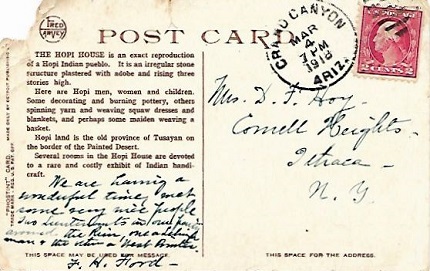 FRED
HARVEY
POST CARD
GRAND CANYON
MAR
4
1 PM
1918
ARIZ.
2 CENTS 2
THE HOPI HOUSE is an exact reproduction
of a Hopi Indian pueblo. It is an irregular stone
structure plastered with adobe and rising three
stories high.
Here are Hopi men, women and children.
Some decorating and burning pottery, others
spinning yarn and weaving squaw dresses and
blankets, and perhaps some maiden weaving a
basket.
Hopi land is the old province of Tusayan on
the border of the Painted Desert.
Several rooms in the Hopi House are devoted
to a rare and costly exhibit of Indian handi-
craft.
We are having a
wonderful time, met
some very nice people
two Lieutenants in our
around the Rim, one
man & the other a West Pointer
F. H. Ford
THIS SPACE MAY BE USED FOR MESSAGE.
Mrs. D. F. Hoy.
Cornell Heights.
Ithaca
N. Y.
THIS SPACE FOR THE ADDRESS.
"PHOSTINT" CARD
MADE ONLY BY DETROIT PUBLISHING